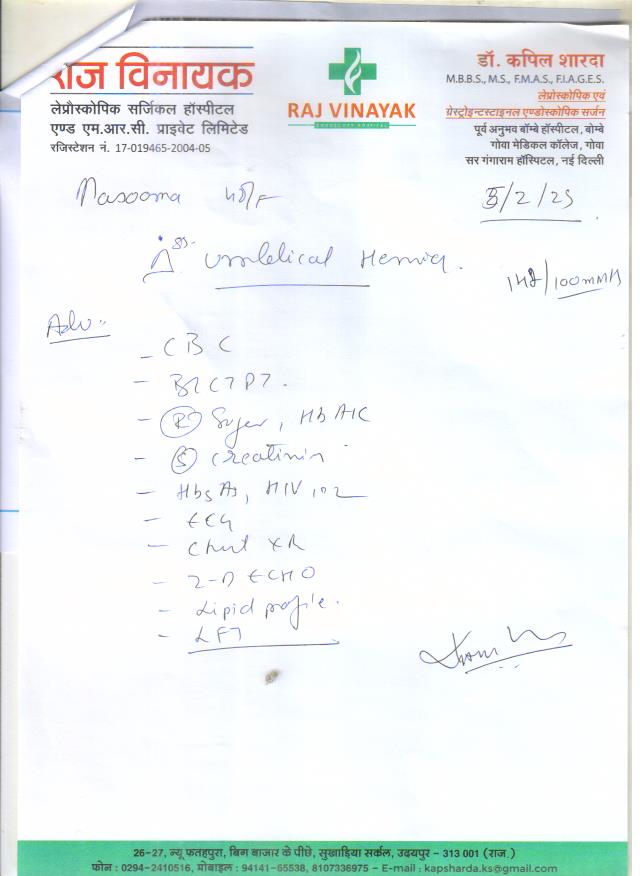 राज विनायक
लेप्रौस्कोपिक सर्जिकल हॉस्पीटल
एण्ड एम.आर.सी. प्राइवेट लिमिटेड
रजिस्टेशन नं. 17-019465-2004-05
RAJ VINAYAK
ENDOSCOPY HOSPITAL
डॉ. कपिल शारदा
M.B.B.S., M.S., F.M.A.S., F.I.A.G.E.S.
लेप्रोस्कोपिक एवं
ग्रेस्ट्रोइन्टस्टाइनल एण्डोस्कोपिक सर्जन
पूर्व अनुभव बॉम्बे हॉस्पीटल, बोम्बे
गोवा मेडिकल कॉलेज, गोवा
सर गंगाराम हॉस्पिटल, नई दिल्ली
Masooma
/2/25
Umbelical Hernia.
/100mmHg
Adv:-
- CBC
- BTCTPT.
- (R) Sugar, HbA1C
- (S) Creatinin
- HbsAg, HIV 102
- ECG
- Chest XR
- 2-D ECHO
- Lipid profile.
- LFT
26-27, न्यू फतहपुरा, बिग बाजार के पीछे, सुखाड़िया सर्कल, उदयपुर - 313 001 (राज.)
फोन : 0294-2410516, मोबाइल : 94141-65538, 8107336975 – E-mail : kapsharda.ks@gmail.com